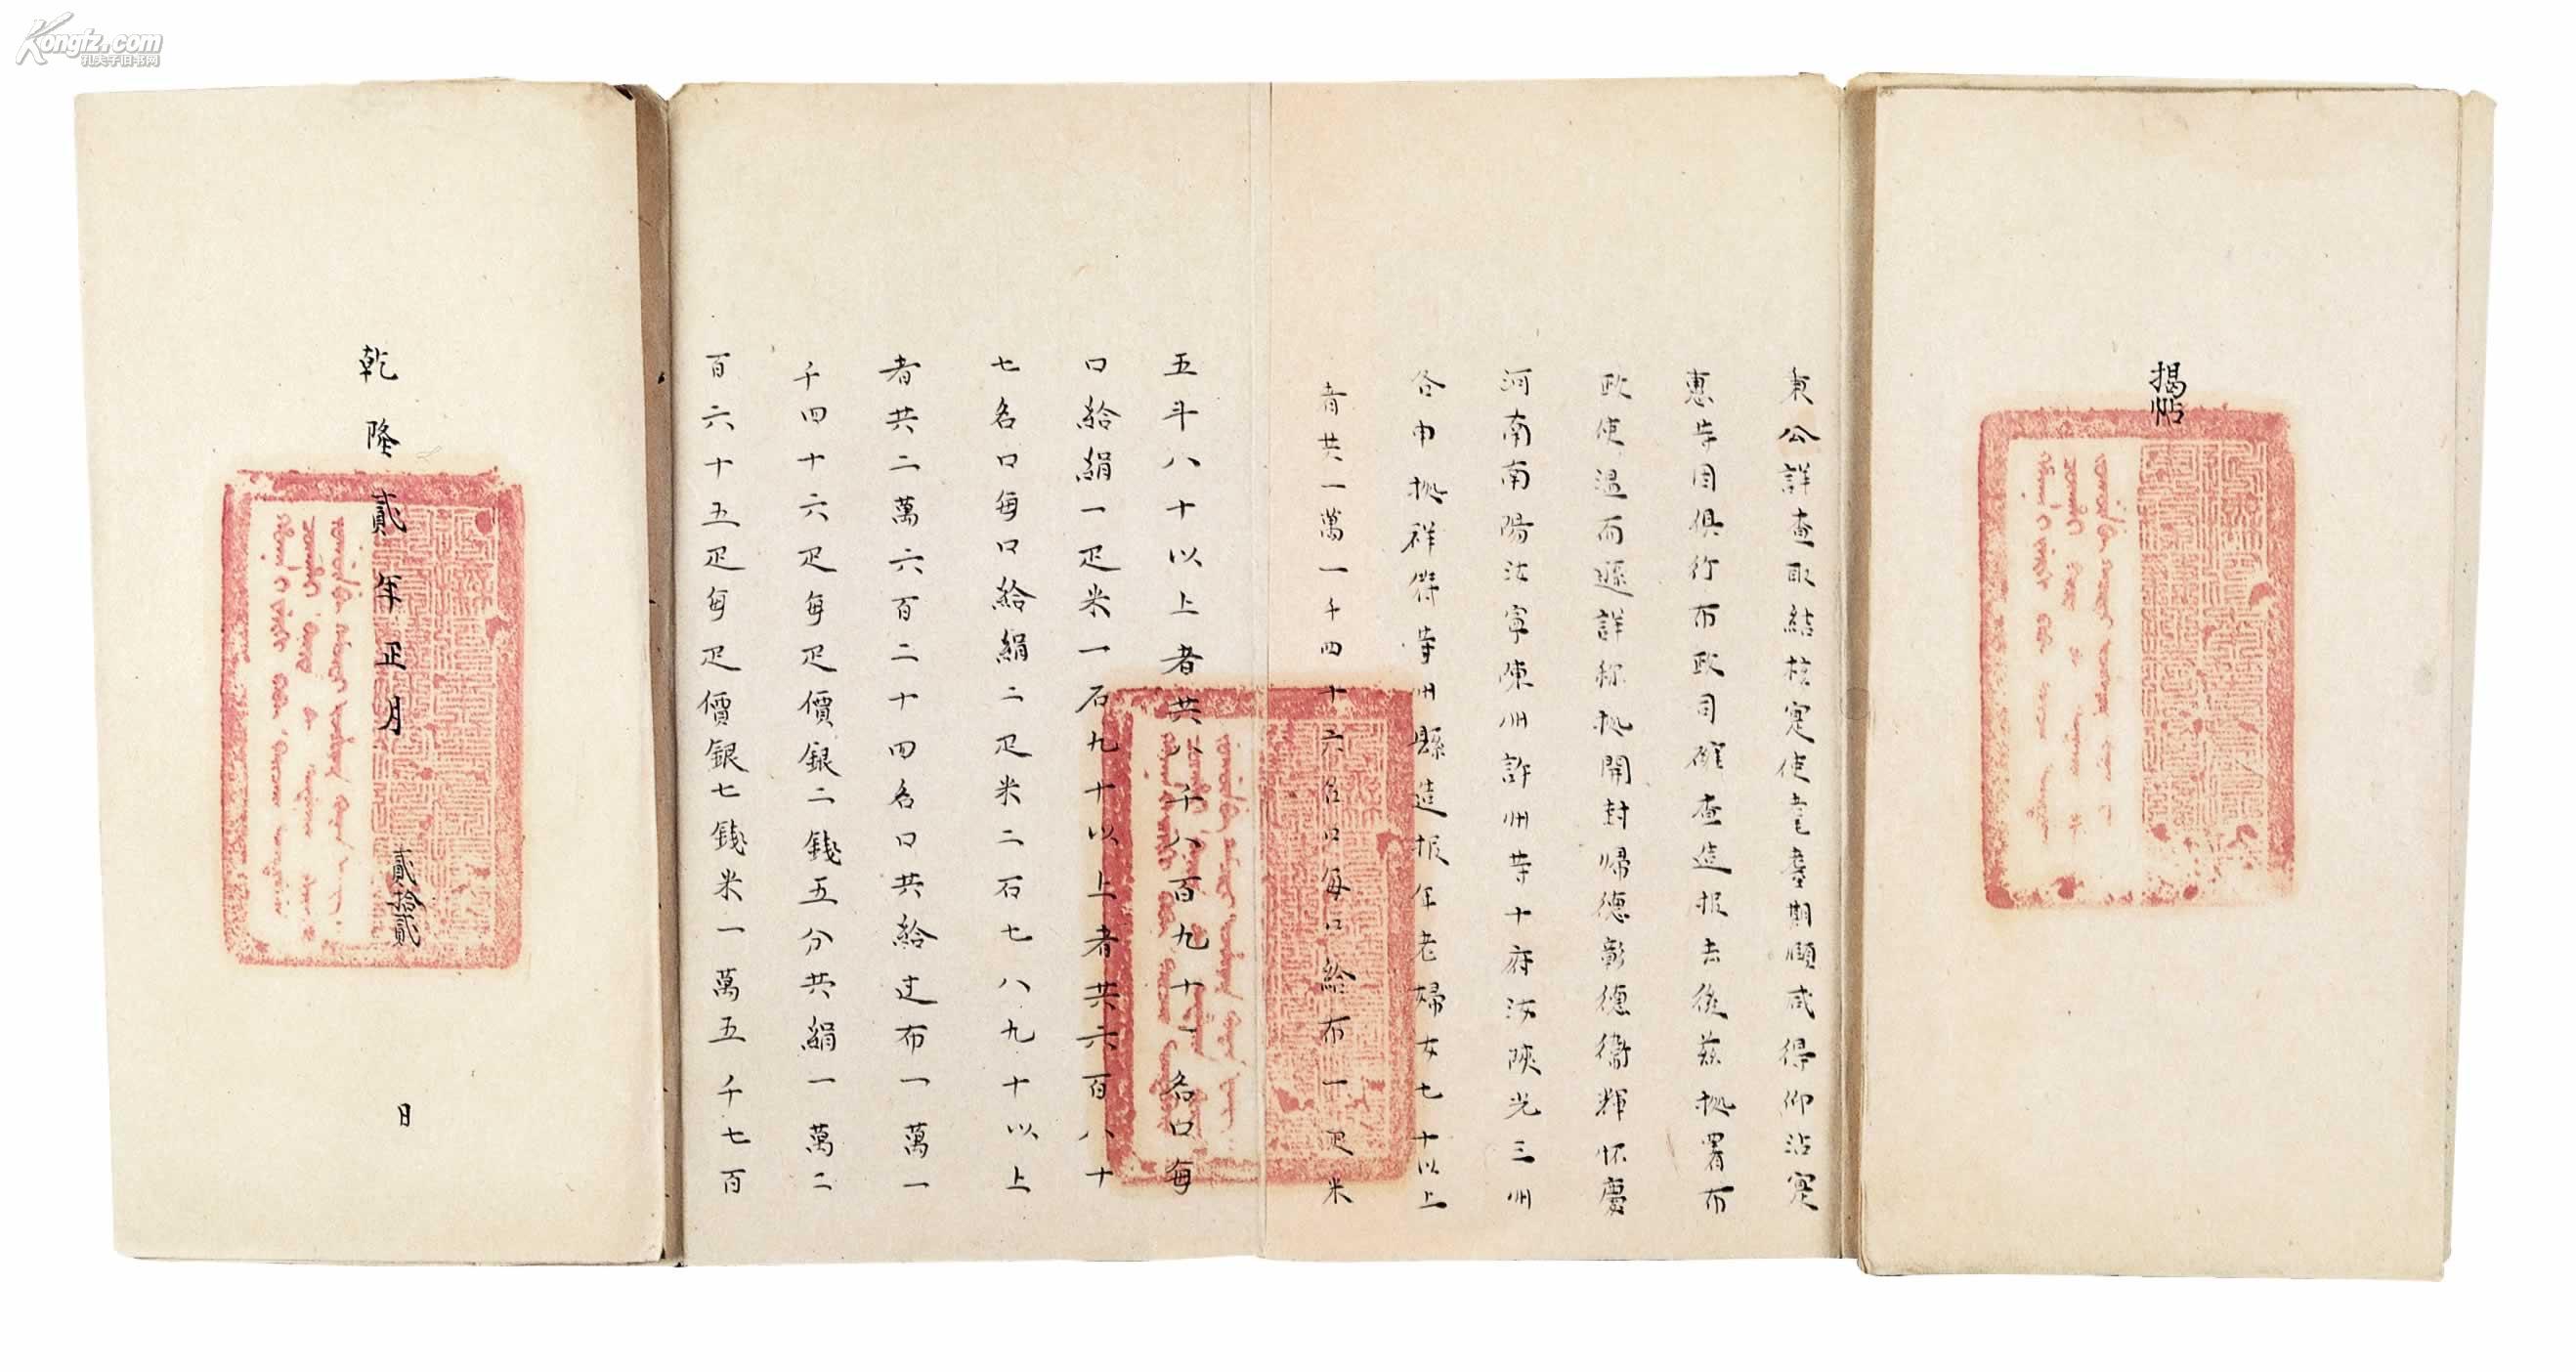 Kongfz.com
孔夫子旧书网
揭帖
秉公詳查取結核寔使耄耋期頤咸得仰沾寔
惠等因俱行布政司確查造报去後茲㨿署布
政使温而遜詳称㨿開封歸德彰德衛輝怀慶
河南南陽汝寧陳州許州等十府汝陕光三州
各申㨿祥符等州縣造报年老婦女七十以上
者共一萬一千四十六名口每口給布一疋米
五斗八十以上者共八千八百九十一名口每
口給絹一疋米一石九十以上者共六百八十
七名口每口給絹二疋米二石七八九十以上
者共二萬六百二十四名口共給过布一萬一
千四十六疋每疋價銀二錢五分共絹一萬二
百六十五疋每疋價銀七錢米一萬五千七百
乾隆貳年正月貳拾貳日